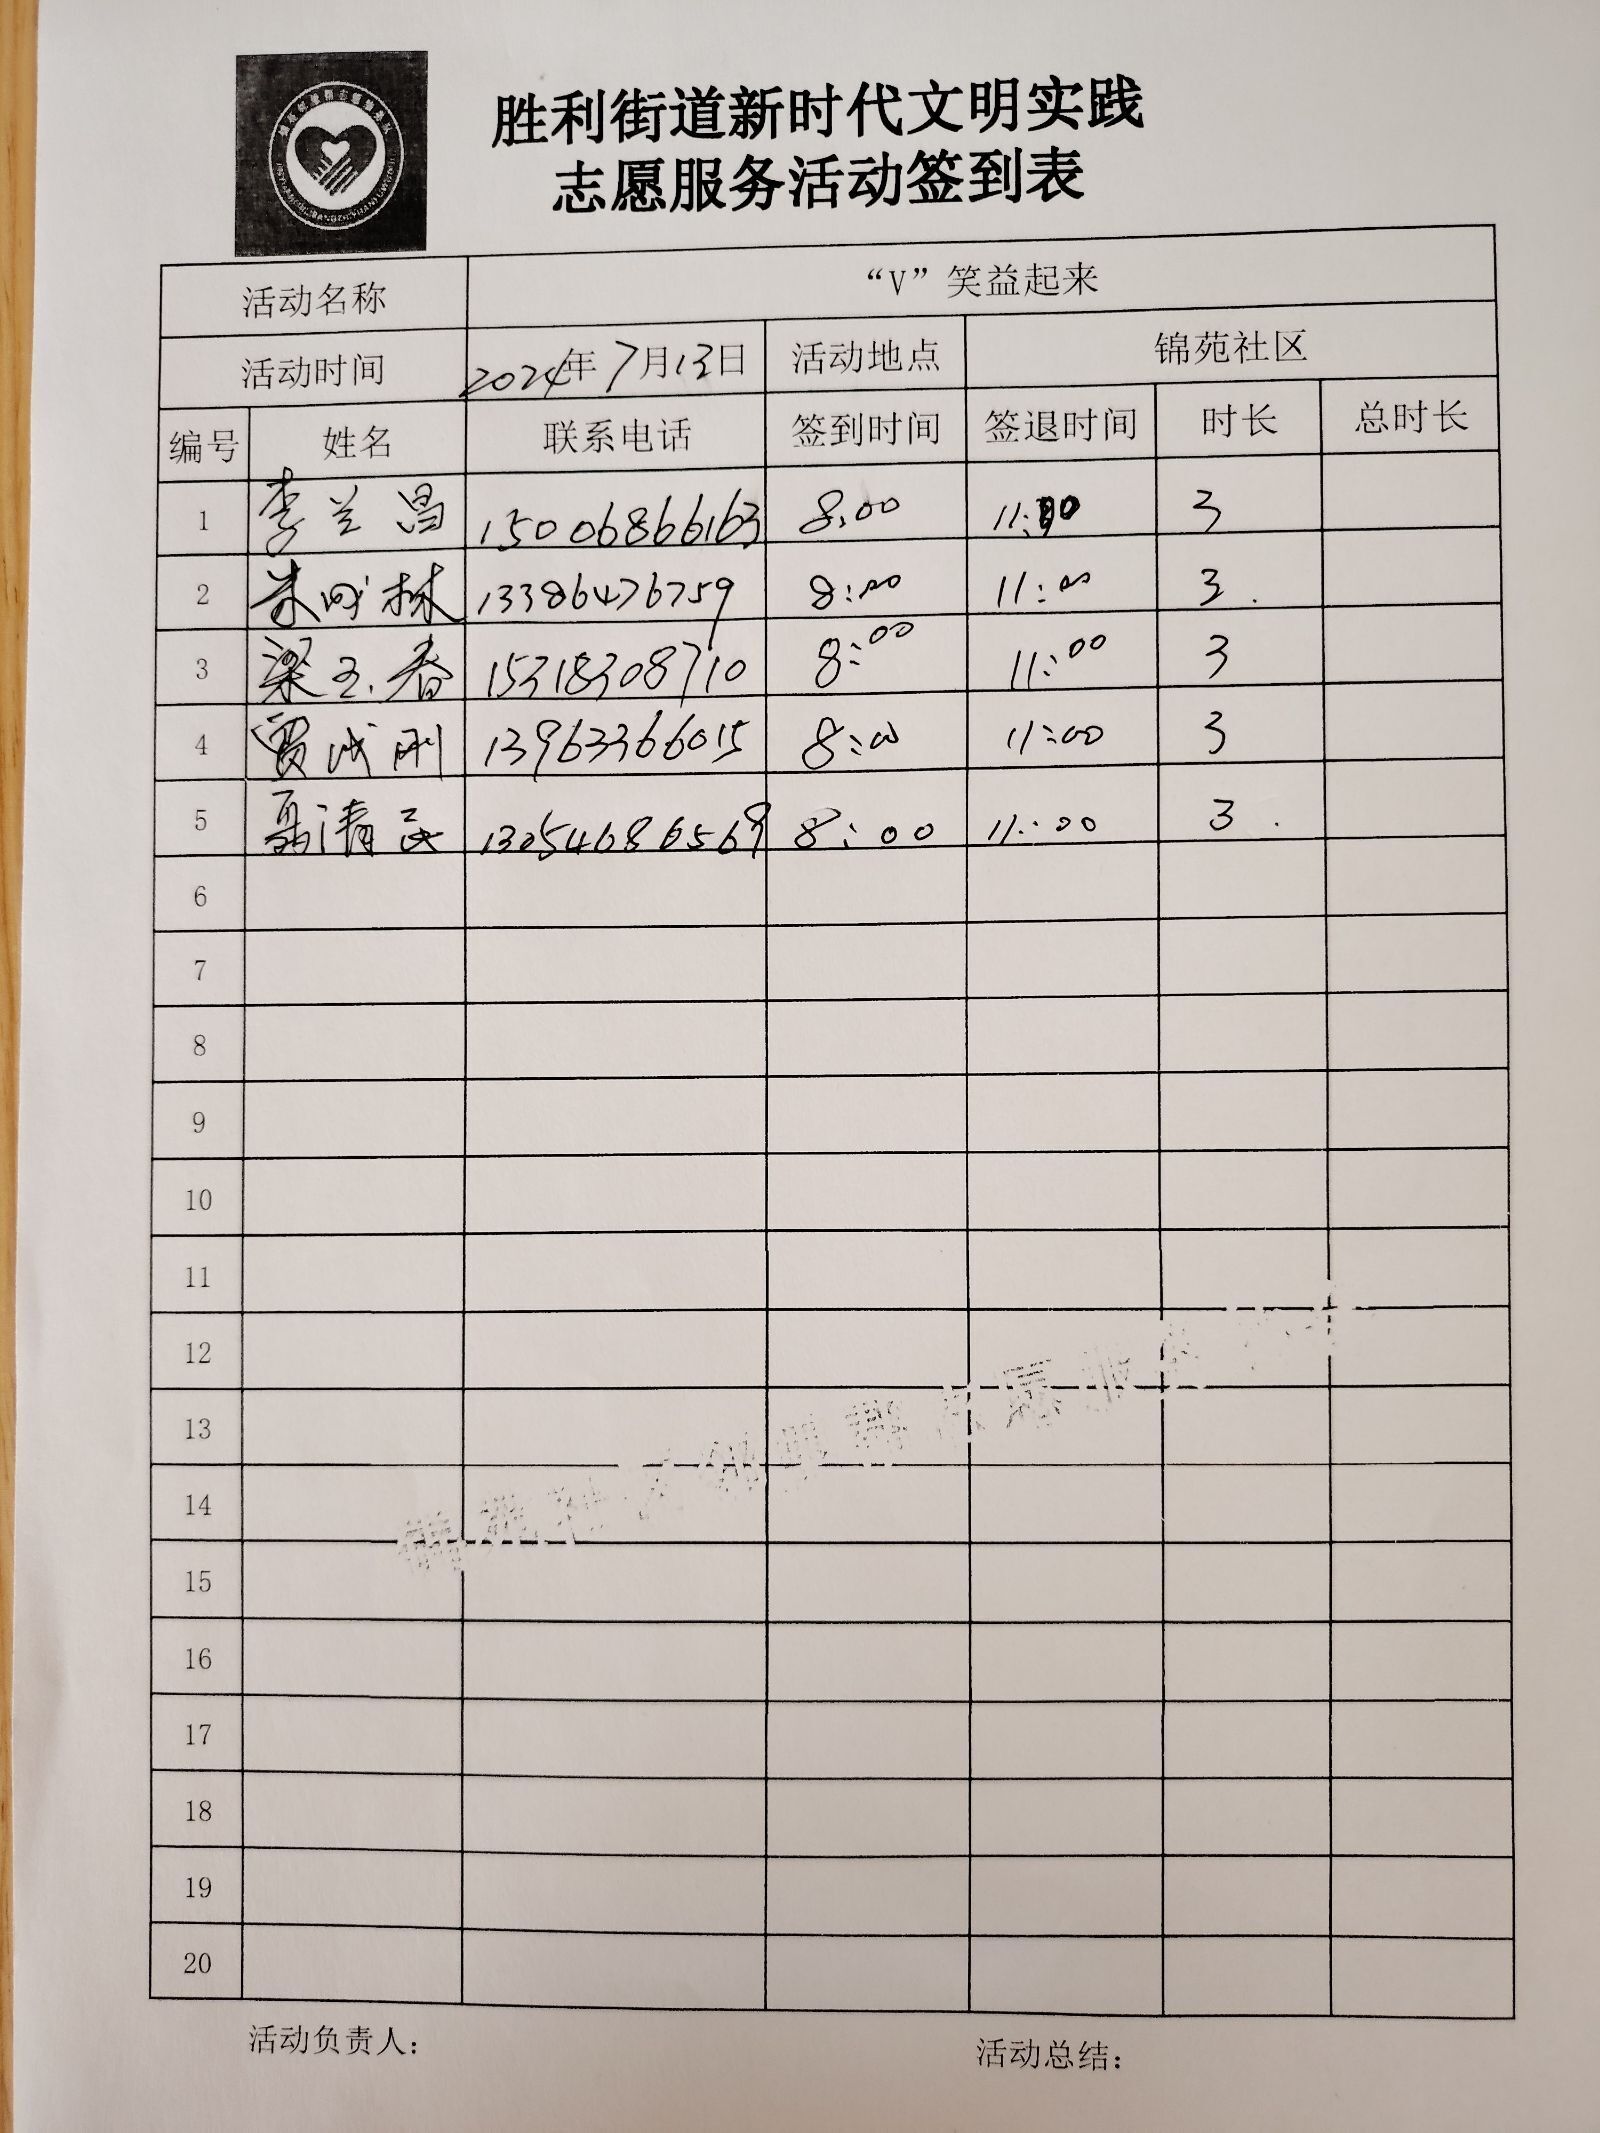 胜利街道新时代文明实践
志愿服务活动签到表
活动名称 “V”笑益起来
活动时间 2024年7月13日 活动地点 锦苑社区
编号 姓名 联系电话 签到时间 签退时间 时长 总时长
1 李兰昌 15006866163 8:00 11:00 3
2 朱成林 13386476759 8:00 11:00 3.
3 梁玉春 15318308710 8:00 11:00 3
4 贾成刚 13963366015 8:00 11:00 3
5 聂清民 13054686569 8:00 11:00 3.
6
7
8
9
10
11
12
13
14
15
16
17
18
19
20
活动负责人： 活动总结：